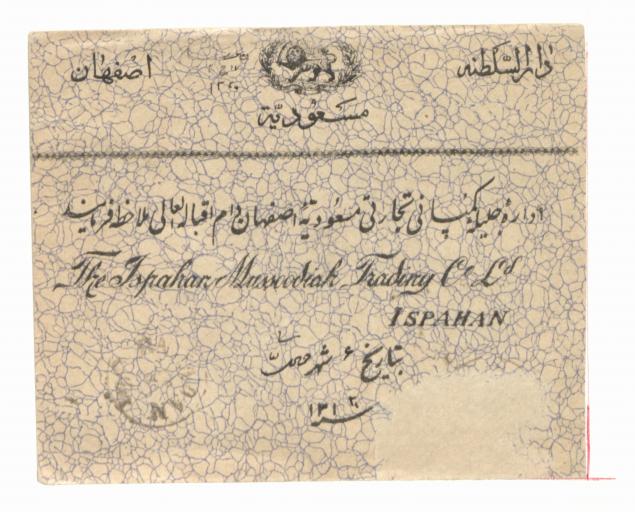 دارالسلطنه اصفهان
مسعودیّة
ادارهٔ جلیله کمپانی تجارتی مسعودیهٔ اصفهان دام اقباله العالی ملاحظه فرمایند
The Ispahan Mussoodiah Trading Co Ld
ISPAHAN
بتاریخ ۶ شهر
سنه ۱۳۱۲